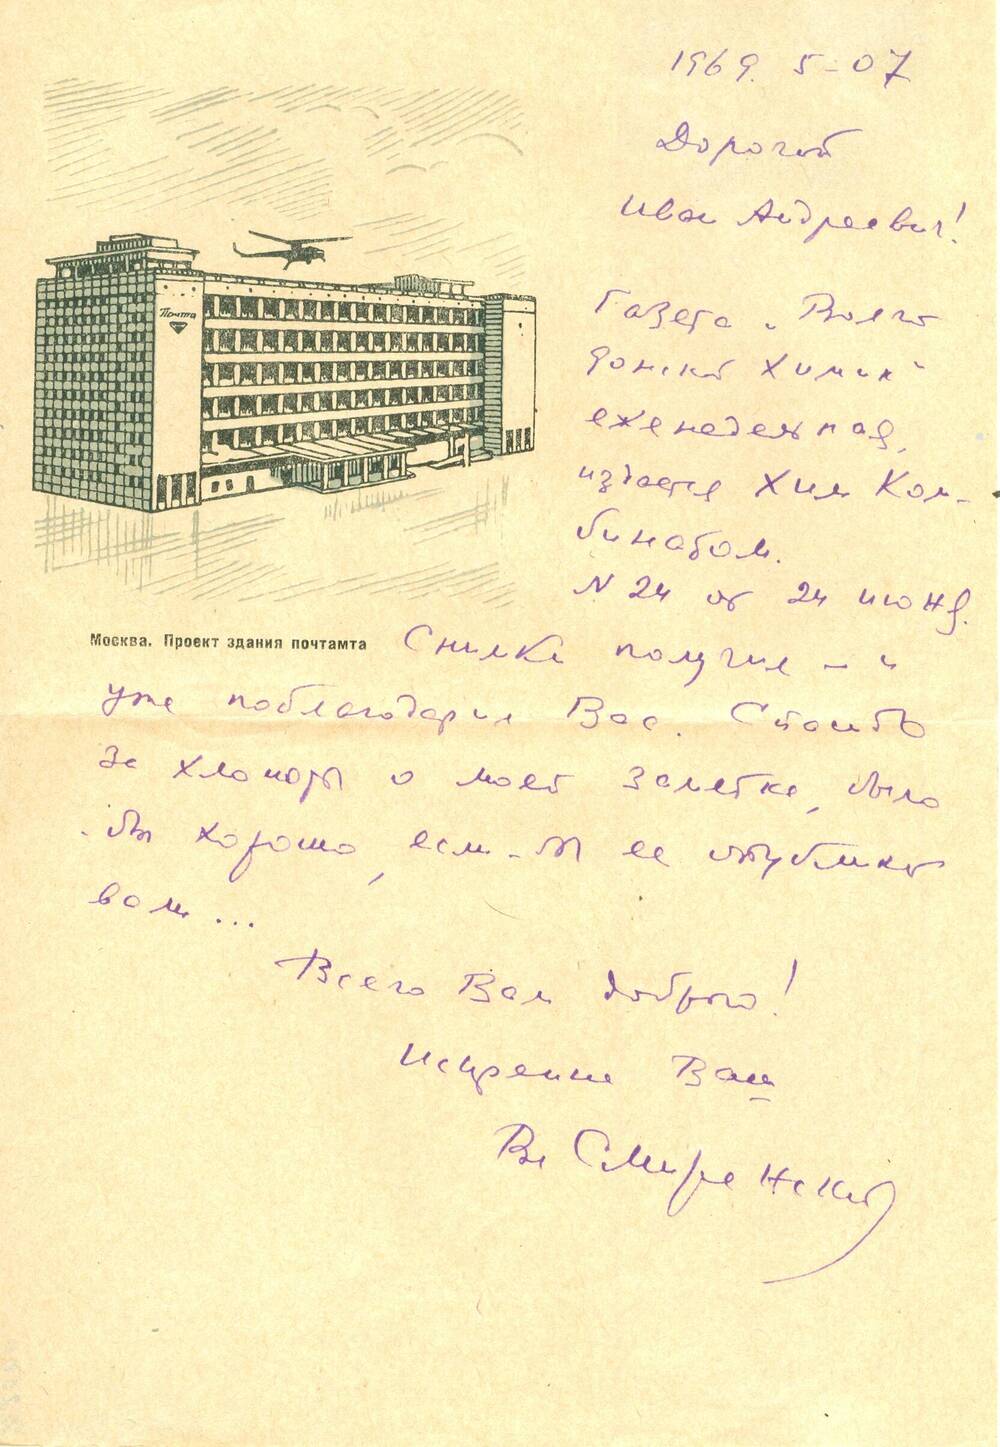 1969. 5-07
Дорогой
Иван Андреевич!
Газета „Волго
донской Химик“
еженедельная,
издается Хим Ком-
бинатом.
N 24 от 24 июня.
Почта
Москва. Проект здания почтамта
Снимки получил – и
уже поблагодарил Вас. Спасибо
за хлопоты о моей заметке, было
бы хорошо, если-бы ее опублико
вали ...
Всего Вам доброго!
Искренне Ваш
Вл Смиренский